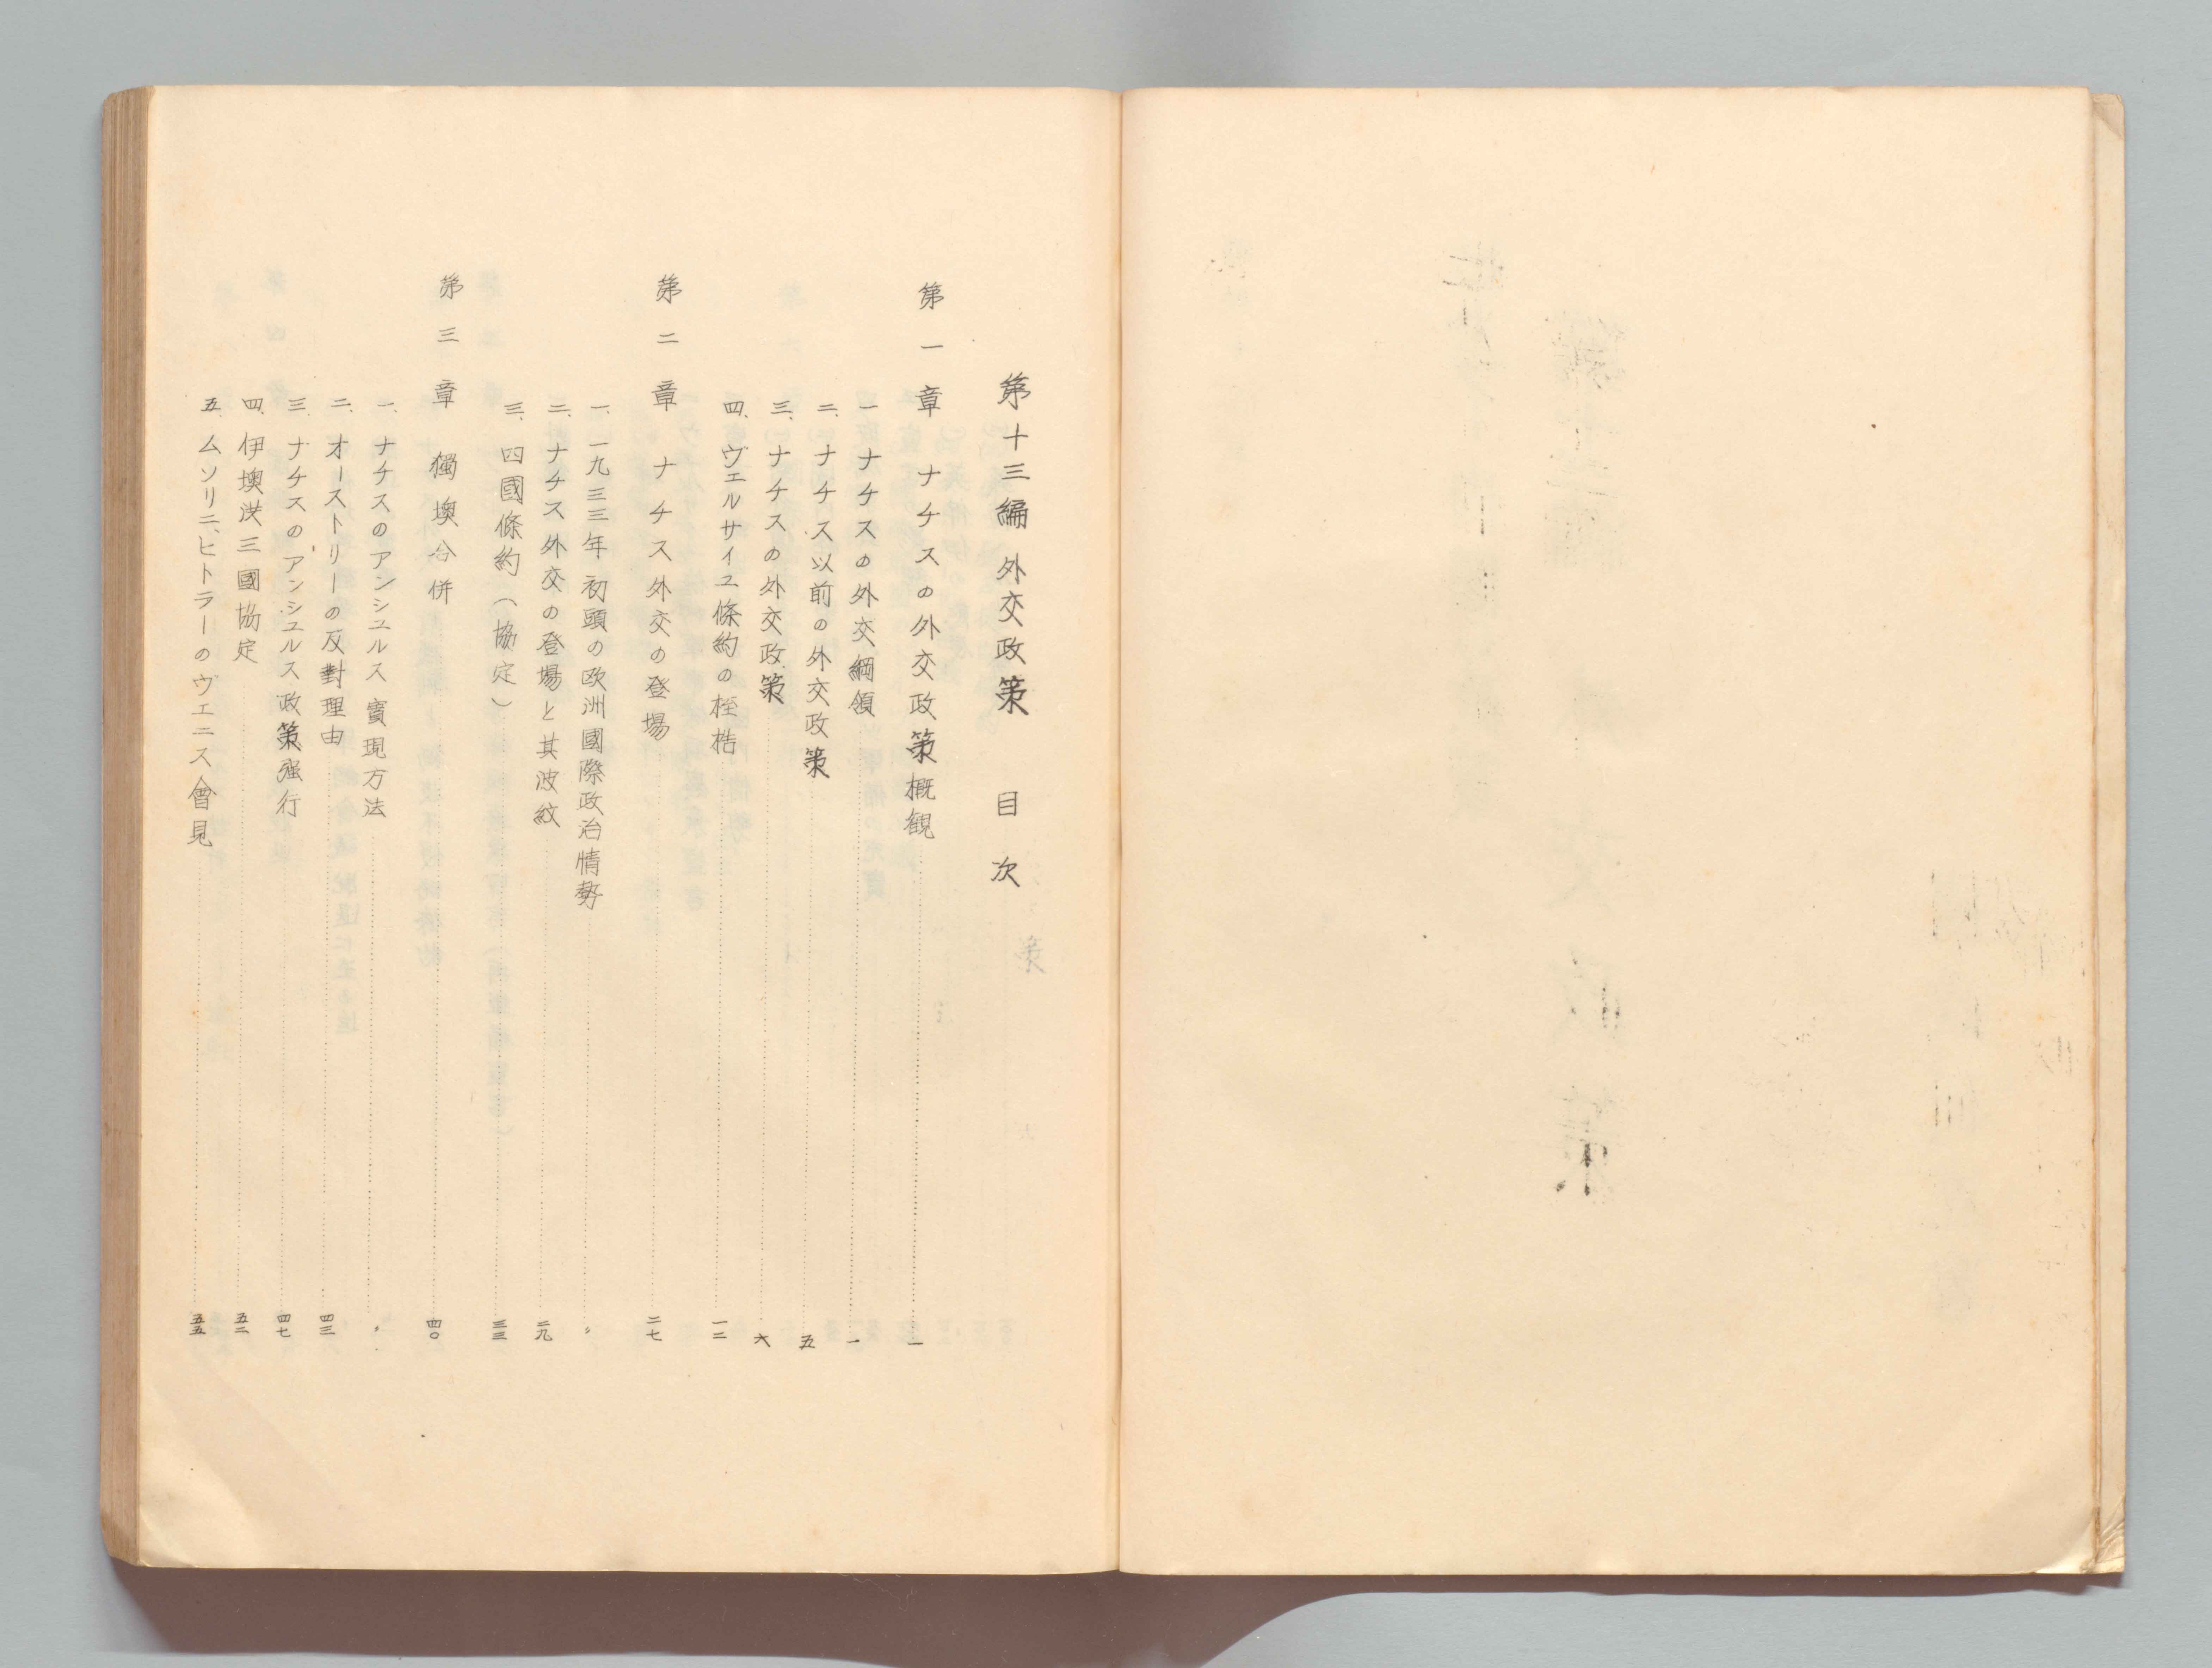 第十三編 外交政策 目次
第一章 ナチスの外交政策概観 一
一 ナチスの外交綱領 一
二、ナチス以前の外交政策 五
三、ナチスの外交政策 六
四、ヴェルサイユ條約の桎梏 一二
第二章 ナチス外交の登場 二七
一、一九三三年初頭の欧洲國際政治情勢 〃
二、ナチス外交の登場と其波紋 二九
三、四國條約（協定） 三三
第三章 獨墺合併 四〇
一、ナチスのアンシユルス實現方法 〃
二、オーストリーの反對理由 四三
三、ナチスのアンシユルス政策强行 四七
四、伊墺洪三國協定 五二
五、ムソリニ、ヒトラーのヴェニス會見 五五